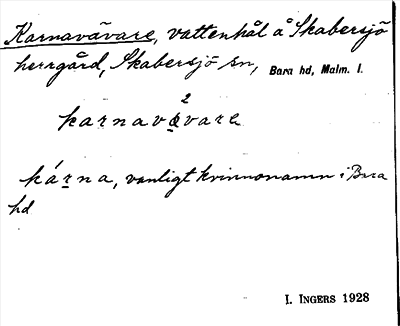 Karnavävare, vattenhål å Skabersjö
herrgård, Skabersjö sn, Bara hd, Malm. l.
2
karnavävare
kárna, vanligt kvinnonamn i Bara
hd
I. INGERS 1928